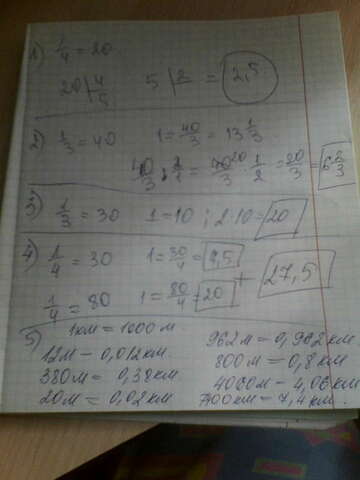 1) 1/4 = 20
20 | 4 5   5 | 2 = 2,5
2) 1/3 = 40   1 = 40/3 = 13 1/3
40/3 : 2/1 = 40/3 20 · 1/2 = 20/3 = 6 2/3
3) 1/3 = 30   1 = 10 ; 2·10 = 20
4) 1/4 = 30   1 = 30/4 = 7,5
+ 27,5
1/4 = 80   1 = 80/4 = 20
5) 1км = 1000 м.
12м – 0,012км.   962м = 0,962км.
380м = 0,38км.   800м = 0,8км.
20м = 0,02км.   4060м – 4,06км.
7400км = 7,4км.